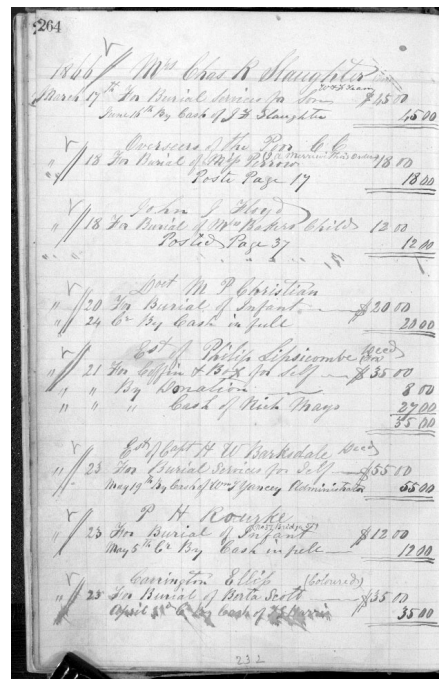 264
1866 Mrs Chas R Slaughter
March 17th For Burial Services for Son $45 00
June 16th By Cash of J F Slaughter 45 00
Overseers of the Poor C C
" 18 For Burial of Miss 18 00
Posted Page 17 18 00
John J Floyd
" 18 For Burial of Mrs Bakers Child 12 00
Posted Page 37 12 00
Doct M P Christian
" 20 For Burial of Infant $20 00
" 24 Cr By Cash in full 20 00
Est of Philip Lipscombe Decd
" 21 For Coffin & Box for Self $35 00
" " By Donation 8 00
" " " Cash of Nich Mays 27 00
35 00
Est of Capt H W Barksdale Decd
" 23 For Burial Services for Self $55 00
May 19th By Cash of Wm T Yancey Administrator 55 00
P H Rourke
" 23 For Burial of Infant $12 00
May 5th Cr By Cash in full 12 00
Carrington Ellis (Coloured)
" 25 For Burial of Berta Scott $35 00
April Cr By Cash of 35 00
232